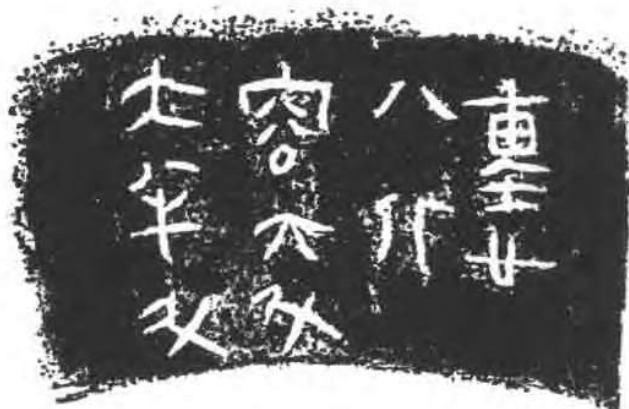 重廿
八斤
容六斗
大半斗